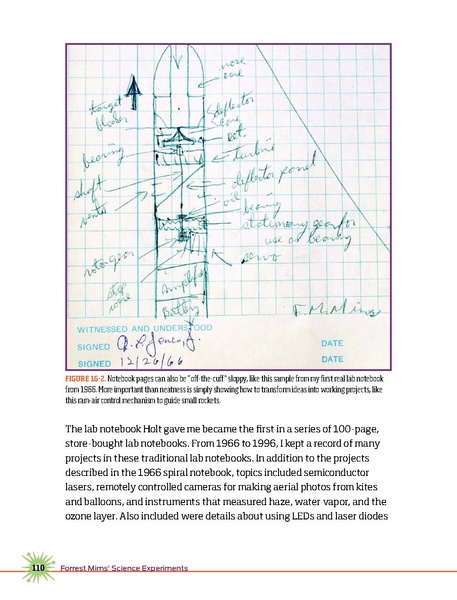 nose
cone
target
deflector
cone
rot.
bearing
turbine
shaft
deflector panel
vents
oil
bearing
stationary gear for
use as bearing
servo
rotor gear
stop
Amplifier
Battery
F.M. Mims
WITNESSED AND UNDERSTOOD
SIGNED
DATE
SIGNED 12/26/66
DATE
FIGURE 16-2. Notebook pages can also be "off-the-cuff" sloppy, like this sample from my first real lab notebook
from 1966. More important than neatness is simply showing how to transform ideas into working projects, like
this ram-air control mechanism to guide small rockets.
The lab notebook Holt gave me became the first in a series of 100-page,
store-bought lab notebooks. From 1966 to 1996, I kept a record of many
projects in these traditional lab notebooks. In addition to the projects
described in the 1966 spiral notebook, topics included semiconductor
lasers, remotely controlled cameras for making aerial photos from kites
and balloons, and instruments that measured haze, water vapor, and the
ozone layer. Also included were details about using LEDs and laser diodes
110 Forrest Mims' Science Experiments